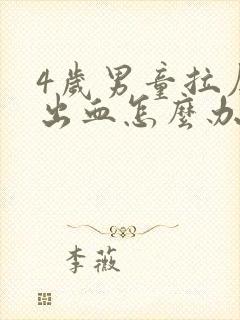 4歲男童拉
出血怎麼办
李薇